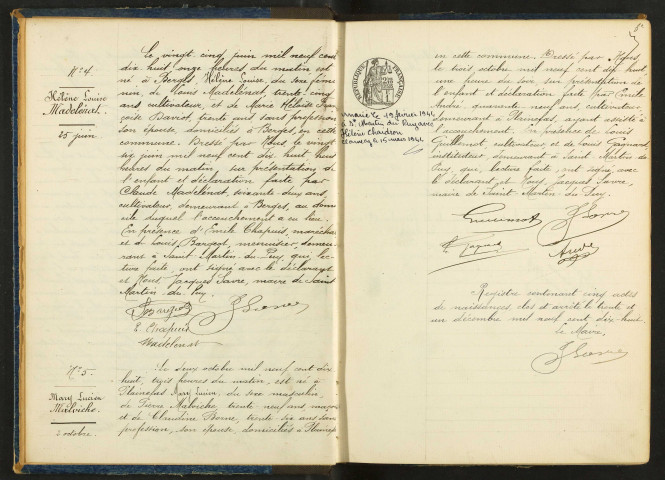 N° 4.
Hélène Louise
Madelénat.
25 juin
Le vingt cinq juin mil neuf cent
dix huit onze heures du matin est
né à Berges Hélène Louise, du sexe fémi
nin, de Louis Madelénat, trente cinq
ans cultivateur, et de Marie Héloïse Fran
çoise Baviot, trente ans sans profession
son épouse, domiciliés à Berges, en cette
commune. Dressé par Nous, le vingt
six juin mil neuf cent dix huit huit
heures du matin, sur présentation de
l'enfant et déclaration faite par
Claude Madelénat, soixante-deux ans,
cultivateur, demeurant à Berges, au domi
cile duquel l'accouchement a eu lieu.
En présence d'Emile Chapuis, maréchal
et de Louis Bargeot, menuisier, demeu
rant à Saint Martin du Puy, qui, lec
ture faite, ont signé avec le déclarant
et Nous, Jacques Favre, maire de Saint
Martin du Puy.
Bargeot
E. Chapuis
Madelénat
N° 5.
Marx Lucien
Maloiche.
2 octobre.
Le deux octobre mil neuf cent dix
huit, trois heures du matin, est né à
Plainefas Marx Lucien, du sexe masculin,
de Pierre Maloiche, trente neuf ans, maçon
et de Claudine Borne, trente six ans son
profession, son épouse, domiciliés à Plainefas
5
RÉPUBLIQUE FRANÇAISE
marié le 19 février 1944
à St Martin du Puy avec
Hélène Chaudron
le 15 mars 1944
en cette commune. Dressé par Nous,
le trois octobre, mil neuf cent dix huit
une heure du soir, sur présentation de
l'enfant et déclaration faite par Emile
André, quarante neuf ans, cultivateur,
demeurant à Plainefas, ayant assisté à
l'accouchement. En présence de Louis
Guillemot, cultivateur, et de Louis Gagnard,
instituteur, demeurant à Saint Martin du
Puy, qui, lecture faite, ont signé avec
le déclarant et Nous, Jacques Favre,
maire de Saint Martin du Puy.
Guillemot
André
Registre contenant cinq actes
de naissances clos et arrêté le trente et
un décembre mil neuf cent dix-huit.
Le Maire,